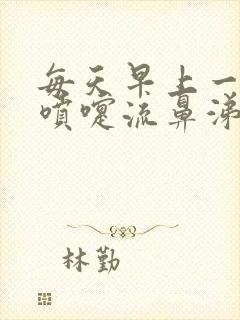 每天早上一
喷嚏流鼻涕
林勤